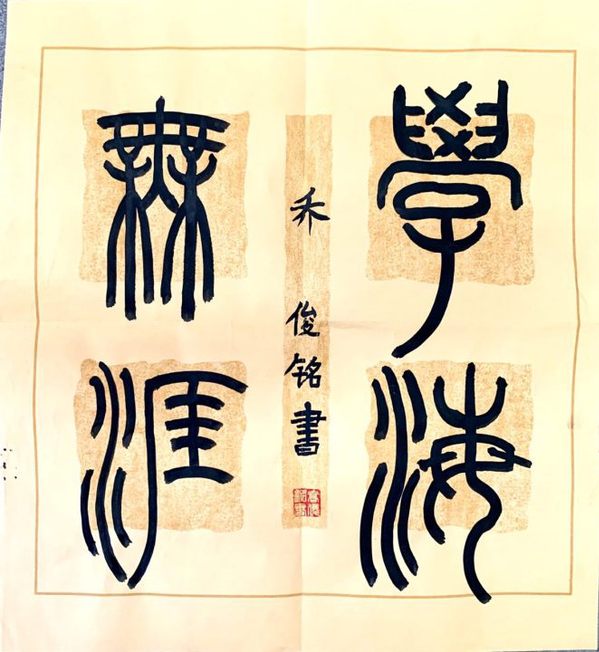 學海
無涯
禾 俊铭書